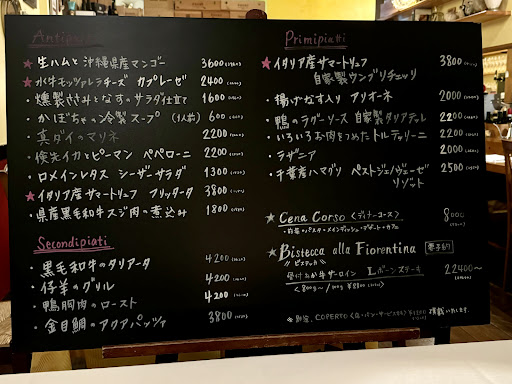 Antipasti
★ 生ハムと沖縄県産マンゴー 3600
★ 水牛モッツァレラチーズ カプレーゼ 2400
・燻製ささみとなすのサラダ仕立て 1600
・かぼちゃの冷製スープ (1人前) 600
・真ダイのマリネ 2200
・槍先イカとピーマン ペペローニ 2200
・ロメインレタス シーザーサラダ 1300
★ イタリア産サマートリュフ フリッタータ 3800
・県産黒毛和牛スジ肉の煮込み 1800
Secondipiatti
・黒毛和牛のタリアータ 4200
・仔羊のグリル 4200
・鴨胸肉のロースト 4200
・金目鯛のアクアパッツァ 3800
Primipiatti
★ イタリア産サマートリュフ 3800
自家製ウンブリチェッリ
・揚げなす入り アリオーネ 2000
・鴨のラグーソース 自家製タリアテレ 2200
・いろいろお肉をつめたトルテッリーニ 2200
・ラザニア 2000
・千葉産ハマグリ ペストジェノヴェーゼ 2500
リゾット
★ Cena Corso <ディナーコース> 8000
・前菜・パスタ・メインディッシュ・デザート・カフェ
★ Bistecca alla Fiorentina 要予約
ビステッカ
骨付き サーロイン Lボーンステーキ 22400〜
<800g〜/100g ¥2800>
※ 別途、COPERTO 頂戴いたします。